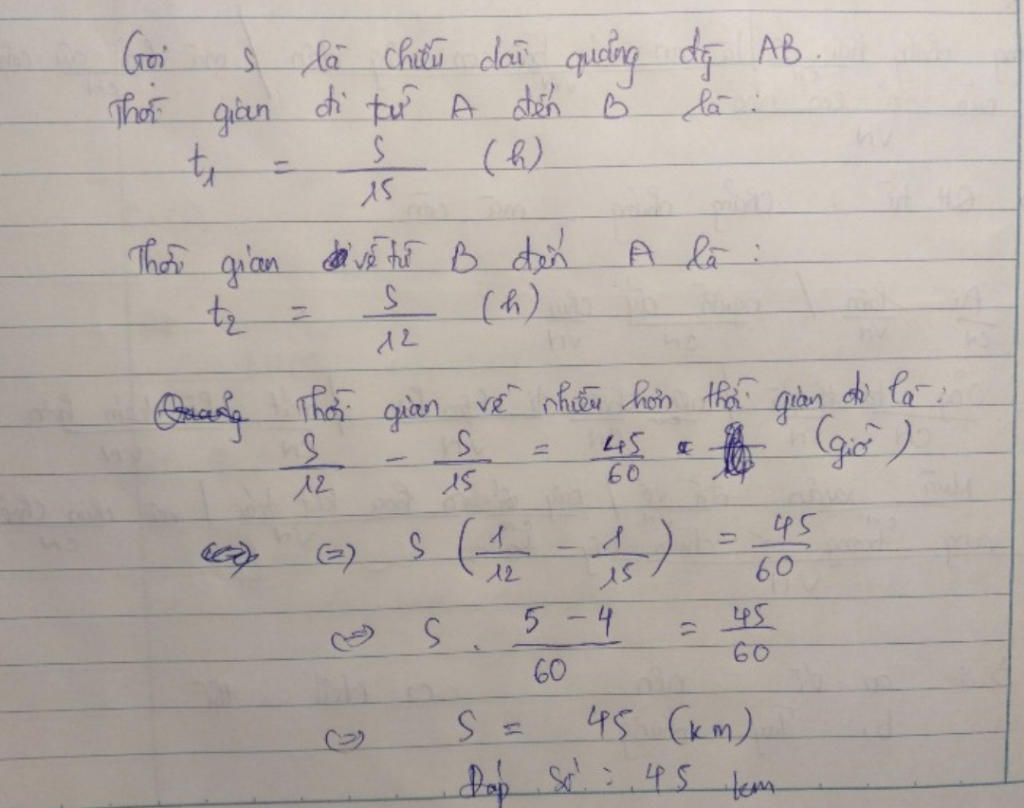 Gọi S là chiều dài quãng đg AB.
Thời gian đi từ A đến B là:
t₁ = S/15 (h)
Thời gian về từ B đến A là:
t₂ = S/12 (h)
Thời gian về nhiều hơn thời gian đi là:
S/12 - S/15 = 45/60 (giờ)
(=) S (1/12 - 1/15) = 45/60
(=) S . 5 - 4/60 = 45/60
(=) S = 45 (km)
Đáp số: 45 km